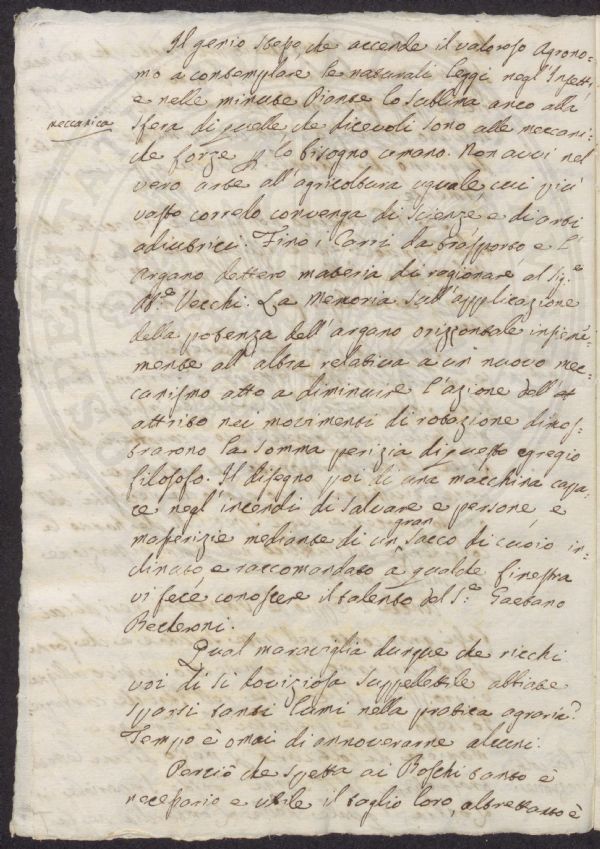 Il genio stesso che accende il valoroso Agrono-
mo a contemplare le naturali leggi negl'Insetti,
e nelle minute Piante lo sublima anco alla
meccanica
sfera di quelle che dicevoli sono alle meccani-
che forze p lo bisogno umano. Non avvi nel
vero arte all'agricoltura uguale cui più
vasto corredo convenga di Scienze e di arti
adiutrici. Fino i Carri da trasporto e l'
argano dettero materia di ragionare al Sg.e
Vecchi. La Memoria sull'applicazione
della potenza dell'argano orizzontale
mente all'altra relativa a un nuovo mec-
canismo atto a diminuire l'azione dell'at
attrito nei movimenti di rotazione dimos-
trarono la somma perizia di questo egregio
filosofo. Il disegno poi di una macchina capa-
ce negl'incendi di salvare e persone, e
masserizie mediante di un gran sacco di cuoio in-
clinato e raccomandato a qualche finestra
vi fece conoscere il talento del S.e Gaetano
Becheroni.
Qual maraviglia dunque che ricchi
voi di sì doviziosa suppelletile abbiate
sparsi tanti lumi nella pratica agraria?
Tempo è omai di annoverarne alcuni.
Perciò che spetta ai Boschi tanto è
necessario e utile il taglio loro, altrettanto è